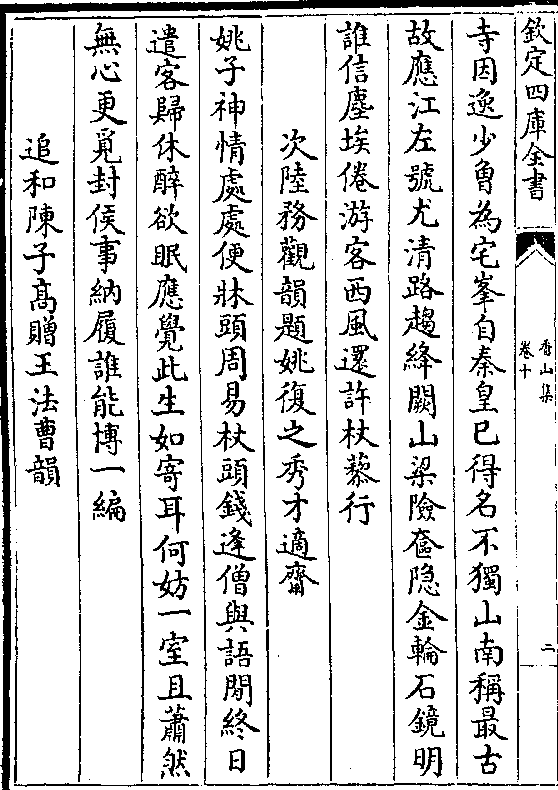 欽定四庫全書
香山集
卷十
二
寺因逸少曾為宅峯自秦皇已得名不獨山南稱最古
故應江左號尤清路趨絳闕山梁險奩隐金輪石鏡明
誰信塵埃倦游客西風還許杖藜行
次陸務觀韻題姚復之秀才適齋
姚子神情處處便牀頭周易杖頭錢逢僧與語閒終日
遣客歸休醉欲眠應覺此生如寄耳何妨一室且蕭然
無心更覓封侯事納履誰能博一編
追和陳子髙贈王法曹韻